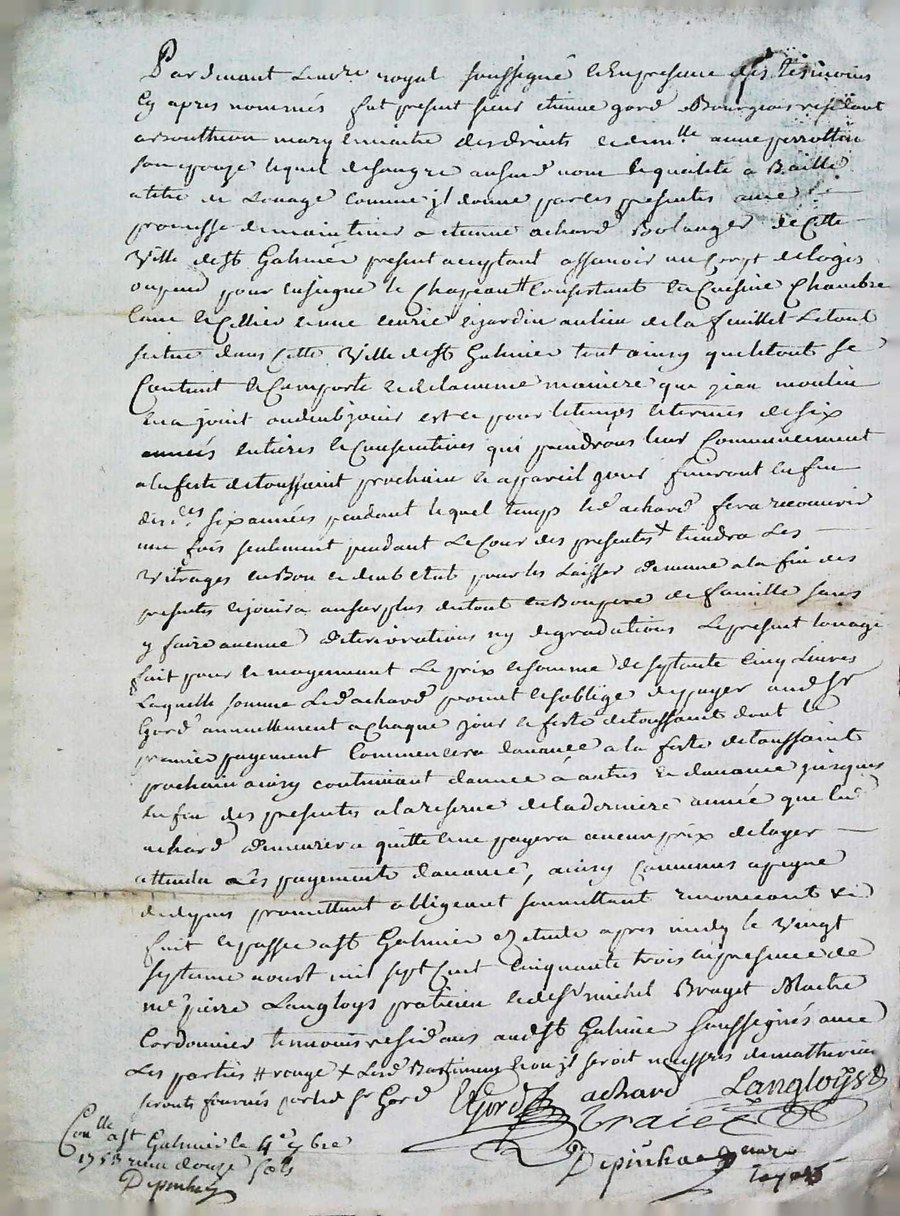 Pardevant Lenore royal soussigné et En presence des tesmoins
Cy apres nommés fut present sieur etienne gord Bourgeois residant
a Bouttheon mary et maitre des droits de dem.lle anne perrottin
son epouze lequel de son gre au surd nom et qualitté a Baillé
a titre de Louage comme jl donne par ces presentes avec
promesse de maintenir a etienne achard Bolanger de Cette
Ville de st Galmier present acceptant assavoir un Corps de logis
ou pend pour enseigne le Chapeau # Consistant En Cuisine Chambre
Cave et Cellier et une ecurie et jardin au lieu de la feuillet Le tout
scitue dans Cette Ville de st Galmier tout ainsy que le tout se
Contient et Comporte et de la mesme maniere que jean moulin
en a joüit ou deub jouir et ce pour le temps et terme de six
années entieres et Consecutives qui prendrons leur Commencement
a la feste de toussaint prochaine et a pareil jour finiront En fin
des d.es six années pendant lequel temps led achard fera recouvrir
une fois seulement pendant Le Cour des presentes + tiendra Les
Vitrages en Bon et deub etat pour les Laisser de mesme a la fin des
presentes et jouira au surplus du tout en Bon pere de famille sans
y faire aucune deteriorations ny degradations Le present louage
fait pour et moyennant Le prix et somme de septante Cinq Livres
Laquelle somme Led achard promet et s'oblige de payer aud sr
Gord annuellement a Chaque jour et feste de toussaint dont le
premier payement Commencera d'avance a la feste de toussaint
prochain ainsy continuant d'année à autres et d'avance jusques
en fin des presentes a la reserve de la derniere année que led
achard demeurera quitte et ne payera aucun prix de loyer
attendu Les payements d'avance, ainsy Convenus a peyne
de depens promettant obligeant soumettant renonceant &c
fait et passé a st Galmier etude apres midy le Vingt
septieme aoust mil sept Cent Cinquante trois en presence de
me pierre Langloys praticien et de sr michel Braget Maitre
Cordonnier temoins residans aud st Galmier soussignés avec
Les parties # rouge + Les d Bastiments et ou jl seroit necessres de matheriaux
seronts fournis par led sr Gord
EtGord achard Langloys
Braiet
Depinhac
Conlle a st Galmier le 4e 7bre
1753 reçu douze sols
Depinhac